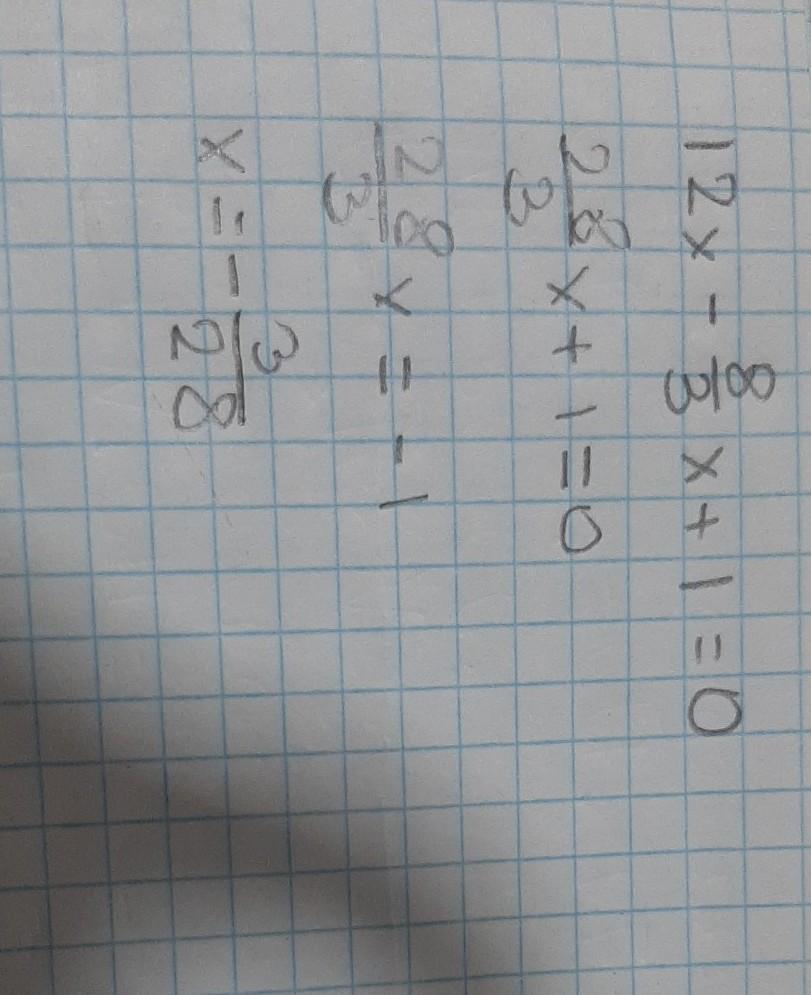 12x - 8/3 x + 1 = 0
28/3 x + 1 = 0
28/3 x = - 1
x = - 3/28